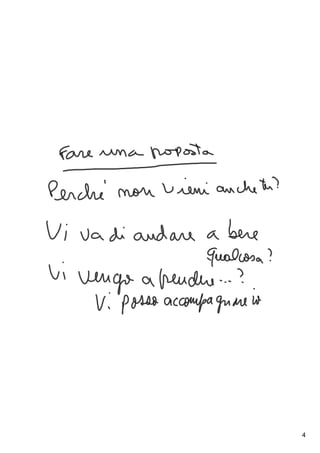 Fare una poposta
Perché non vieni anche tu?
Vi va di andare a bere
qualcosa?
Vi vengo a prendere...?
Vi posso accompagnare io
4